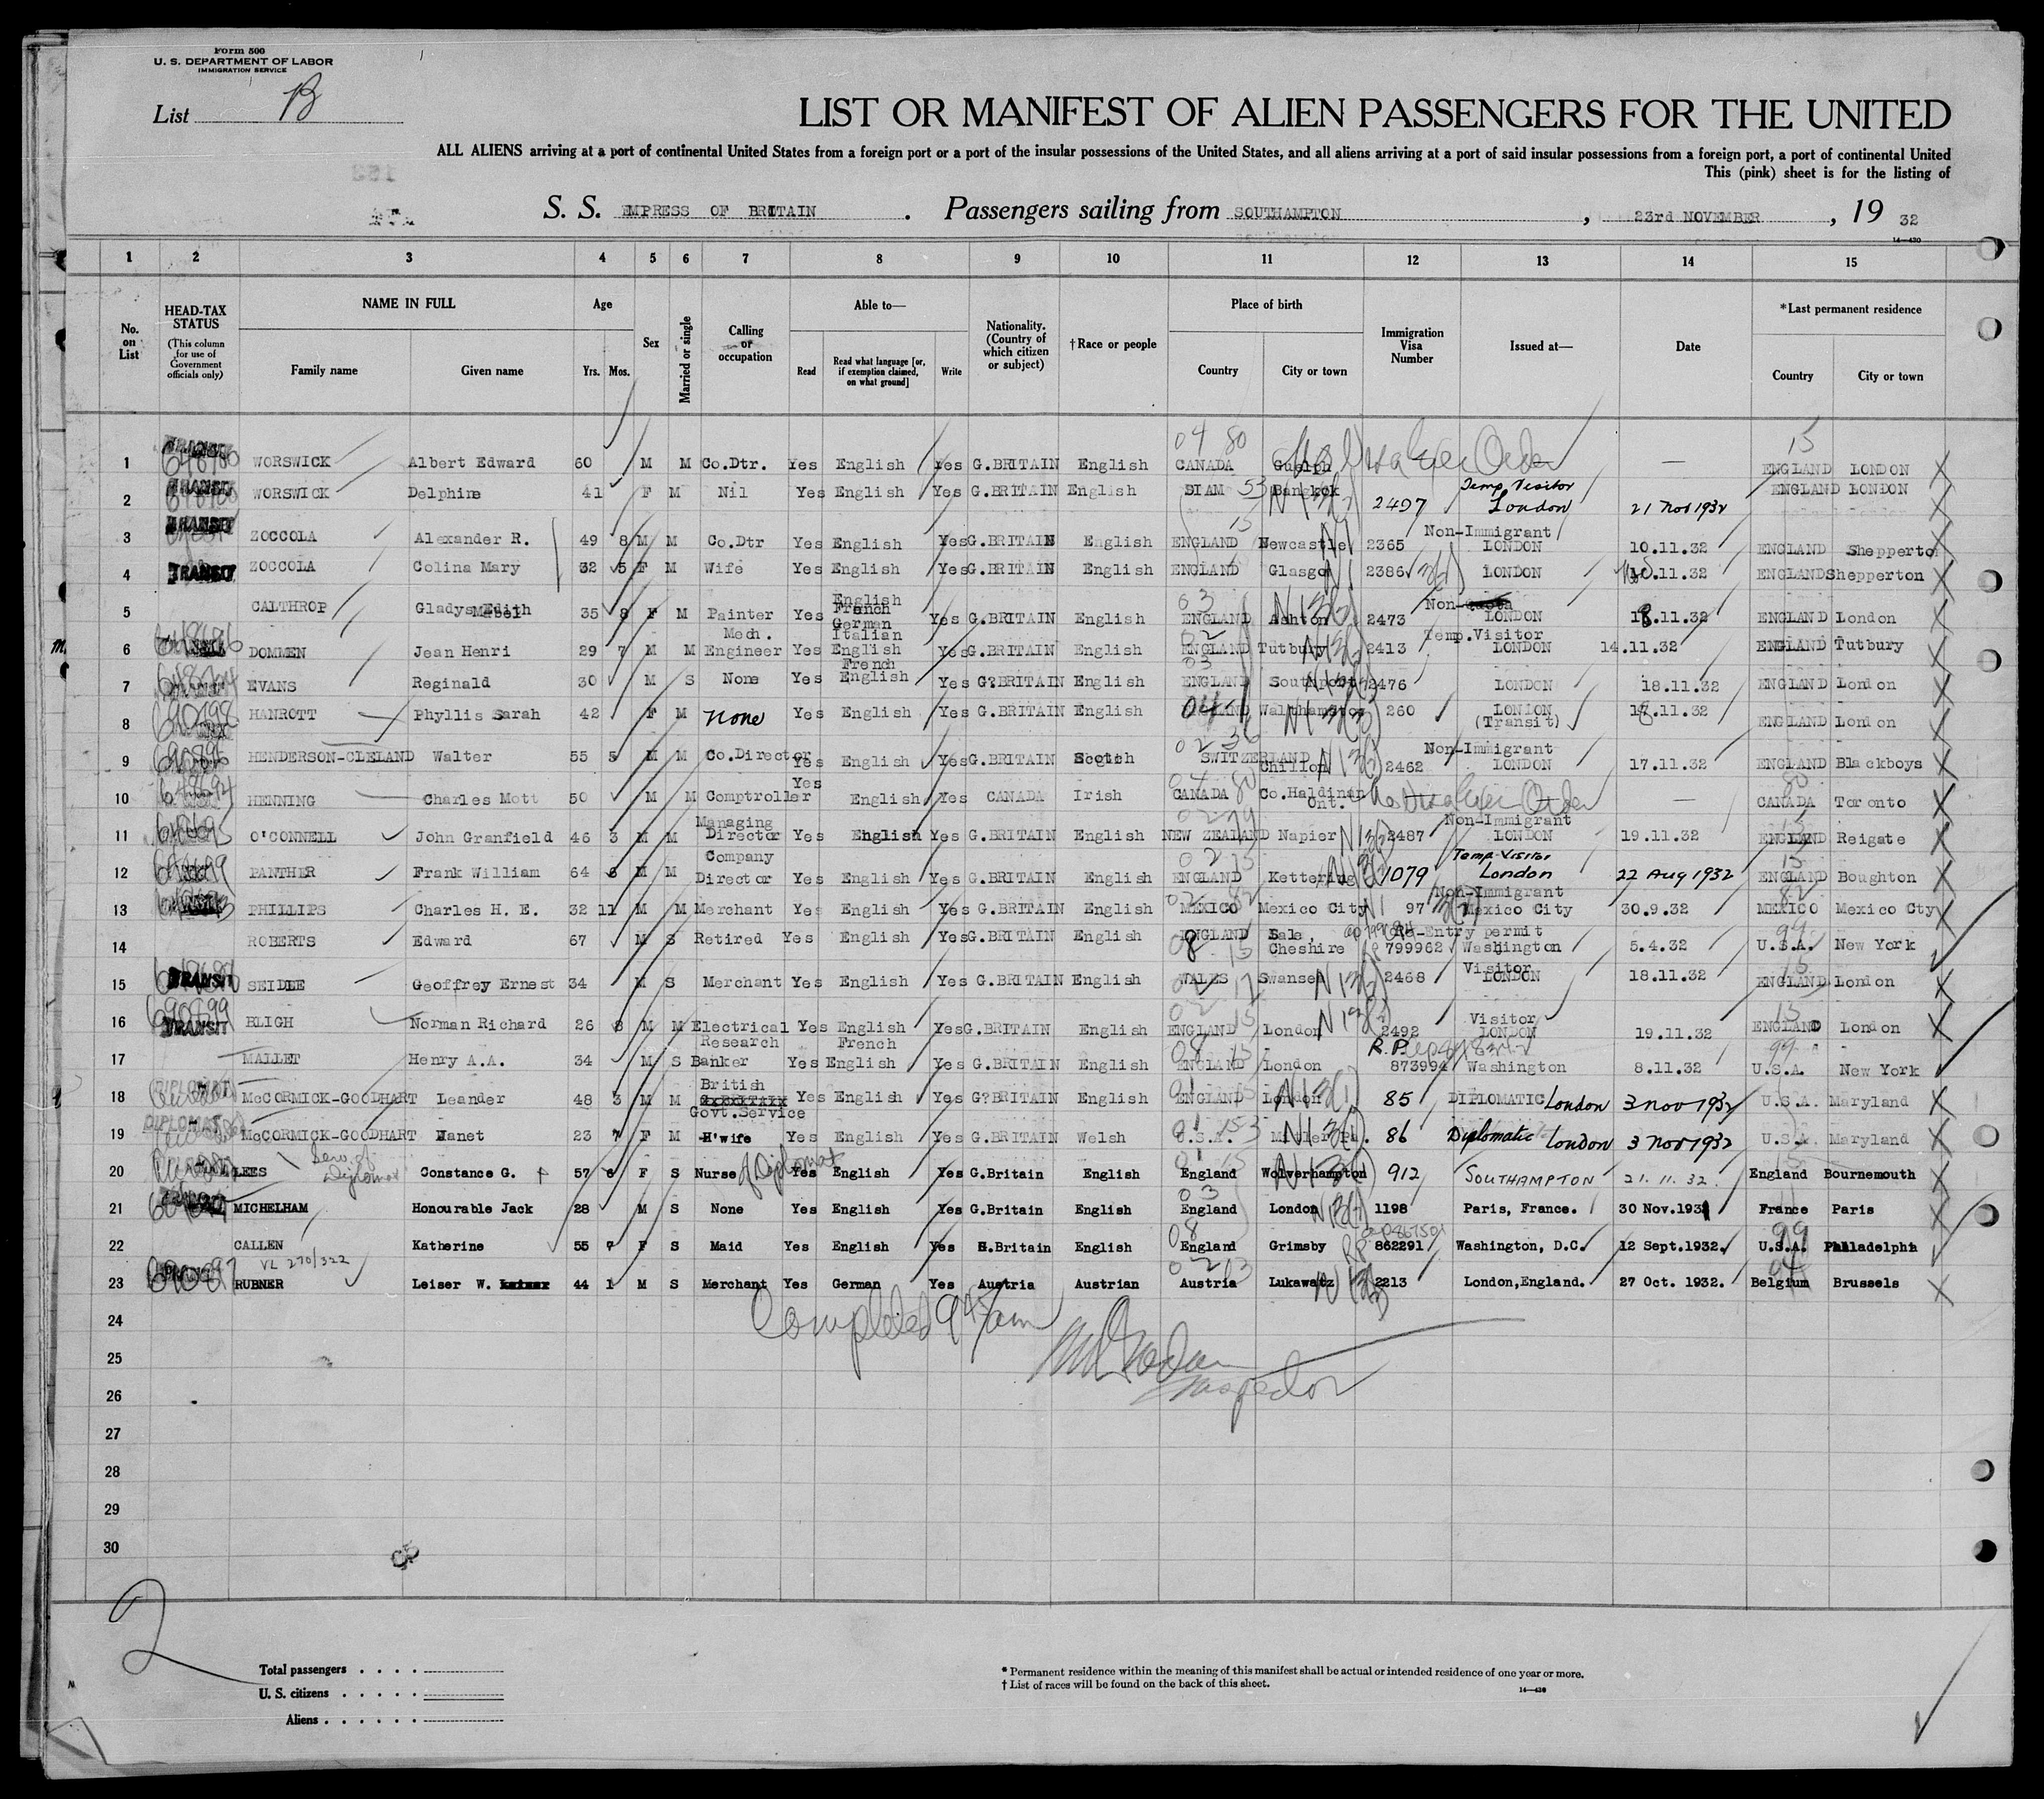 Form 500
U. S. DEPARTMENT OF LABOR
IMMIGRATION SERVICE
List B
LIST OR MANIFEST OF ALIEN PASSENGERS FOR THE UNITED
ALL ALIENS arriving at a port of continental United States from a foreign port or a port of the insular possessions of the United States, and all aliens arriving at a port of said insular possessions from a foreign port, a port of continental United
This (pink) sheet is for the listing of
S. S. EMPRESS OF BRITAIN . Passengers sailing from SOUTHAMPTON , 23rd NOVEMBER , 19 32
14—430
1 2 3 4 5 6 7 8 9 10 11 12 13 14 15
No. on List
HEAD-TAX STATUS
(This column for use of Government officials only)
NAME IN FULL
Family name Given name
Age
Yrs. Mos.
Sex
Married or single
Calling or occupation
Able to—
Read Read what language [or, if exemption claimed, on what ground] Write
Nationality. (Country of which citizen or subject)
†Race or people
Place of birth
Country City or town
Immigration Visa Number
Issued at—
Date
*Last permanent residence
Country City or town
1 WORSWICK Albert Edward 60 M M Co.Dtr. Yes English Yes G.BRITAIN English CANADA Guelph — ENGLAND LONDON
2 TRANSIT WORSWICK Delphine 41 F M Nil Yes English Yes G.BRITAIN English SIAM Bangkok 2497 Temp. Visitor London 21 Nov 1932 ENGLAND LONDON
3 TRANSIT ZOCCOLA Alexander R. 49 8 M M Co.Dtr Yes English Yes G.BRITAIN English ENGLAND Newcastle 2365 Non-Immigrant LONDON 10.11.32 ENGLAND Shepperto
4 TRANSIT ZOCCOLA Colina Mary 32 5 F M Wife Yes English Yes G.BRITAIN English ENGLAND Glasgo 2386 LONDON 10.11.32 ENGLAND Shepperton
5 CALTHROP Gladys Edith Mabel 35 8 F M Painter Yes English French German Italian Yes G.BRITAIN English ENGLAND Ashton 2473 Non- LONDON 18.11.32 ENGLAND London
6 DOMMEN Jean Henri 29 7 M M Mech. Engineer Yes English French Yes G.BRITAIN English ENGLAND Tutbury 2413 Temp.Visitor LONDON 14.11.32 ENGLAND Tutbury
7 EVANS Reginald 30 M S None Yes English Yes G?BRITAIN English ENGLAND Southport 2476 LONDON 18.11.32 ENGLAND London
8 HANROTT Phyllis Sarah 42 F M None Yes English Yes G.BRITAIN English Walthamstow 260 LONDON (Transit) 18.11.32 ENGLAND London
9 HENDERSON-CLELAND Walter 55 5 M M Co.Director Yes English Yes G.BRITAIN Scotch SWITZERLAND Chillon 2462 Non-Immigrant LONDON 17.11.32 ENGLAND Blackboys
10 HENNING Charles Mott 50 M M Comptroller Yes English Yes CANADA Irish CANADA Co.Haldiman Ont. — CANADA Toronto
11 O'CONNELL John Granfield 46 3 M M Managing Director Yes English Yes G.BRITAIN English NEW ZEALAND Napier 2487 Non-Immigrant LONDON 19.11.32 ENGLAND Reigate
12 PANTHER Frank William 64 6 M M Company Director Yes English Yes G.BRITAIN English ENGLAND Kettering 1079 Temp. Visitor London 22 Aug 1932 ENGLAND Boughton
13 PHILLIPS Charles H. E. 32 11 M M Merchant Yes English Yes G.BRITAIN English MEXICO Mexico City 97 Non-Immigrant Mexico City 30.9.32 MEXICO Mexico Cty
14 ROBERTS Edward 67 M S Retired Yes English Yes G.BRITAIN English ENGLAND Sale, Cheshire 799962 Re-Entry permit Washington 5.4.32 U.S.A. New York
15 TRANSIT SEIDLE Geoffrey Ernest 34 M S Merchant Yes English Yes G.BRITAIN English WALES Swansea 2468 Visitor LONDON 18.11.32 ENGLAND London
16 TRANSIT BLIGH Norman Richard 26 8 M M Electrical Research Yes English French Yes G.BRITAIN English ENGLAND London 2492 Visitor LONDON 19.11.32 ENGLAND London
17 MALLET Henry A.A. 34 M S Banker Yes English Yes G.BRITAIN English ENGLAND London R.P. 873994 Washington 8.11.32 U.S.A. New York
18 DIPLOMAT McCORMICK-GOODHART Leander 48 3 M M British Govt.Service Yes English Yes G?BRITAIN English ENGLAND London 85 DIPLOMATIC London 3 Nov 1932 U.S.A. Maryland
19 DIPLOMAT McCORMICK-GOODHART Janet 23 7 F M H'wife Yes English Yes G.BRITAIN Welsh U.S.A. 86 Diplomatic London 3 Nov 1932 U.S.A. Maryland
20 LEES Serv. of Diplomat Constance G. 57 6 F S Nurse of Diplomat Yes English Yes G.Britain English England Wolverhampton 912 SOUTHAMPTON 21.11.32. England Bournemouth
21 MICHELHAM Honourable Jack 28 M S None Yes English Yes G.Britain English England London 1198 Paris, France. 30 Nov.1931 France Paris
22 CALLEN Katherine 55 7 F S Maid Yes English Yes G.Britain English England Grimsby RP 862291 Washington, D.C. 12 Sept.1932. U.S.A. Philadelphia
VL 270/322
23 RUBNER Leiser W. 44 1 M S Merchant Yes German Yes Austria Austrian Austria Lukawatz 2213 London,England. 27 Oct. 1932. Belgium Brussels
24 Completed 9 45 am
25
26 Inspector
27
28
29
30
2
Total passengers . . . .
U. S. citizens . . . . .
Aliens . . . . . .
* Permanent residence within the meaning of this manifest shall be actual or intended residence of one year or more.
† List of races will be found on the back of this sheet.
14—430